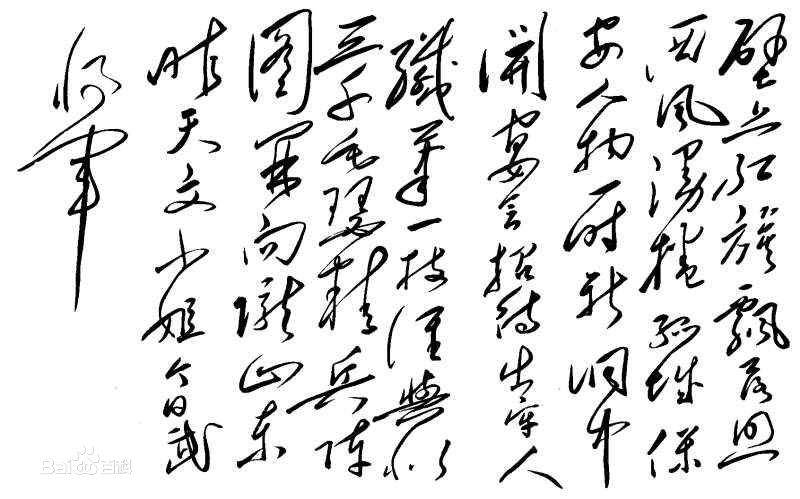 壁上红旗飘落照
西风漫捲孤城保
安人物一时新洞中
開宴会招待出牢人
纖筆一枝谁與似
三千毛瑟精兵阵
图開向陇山东
昨天文小姐今日武
将军
Baidu百科